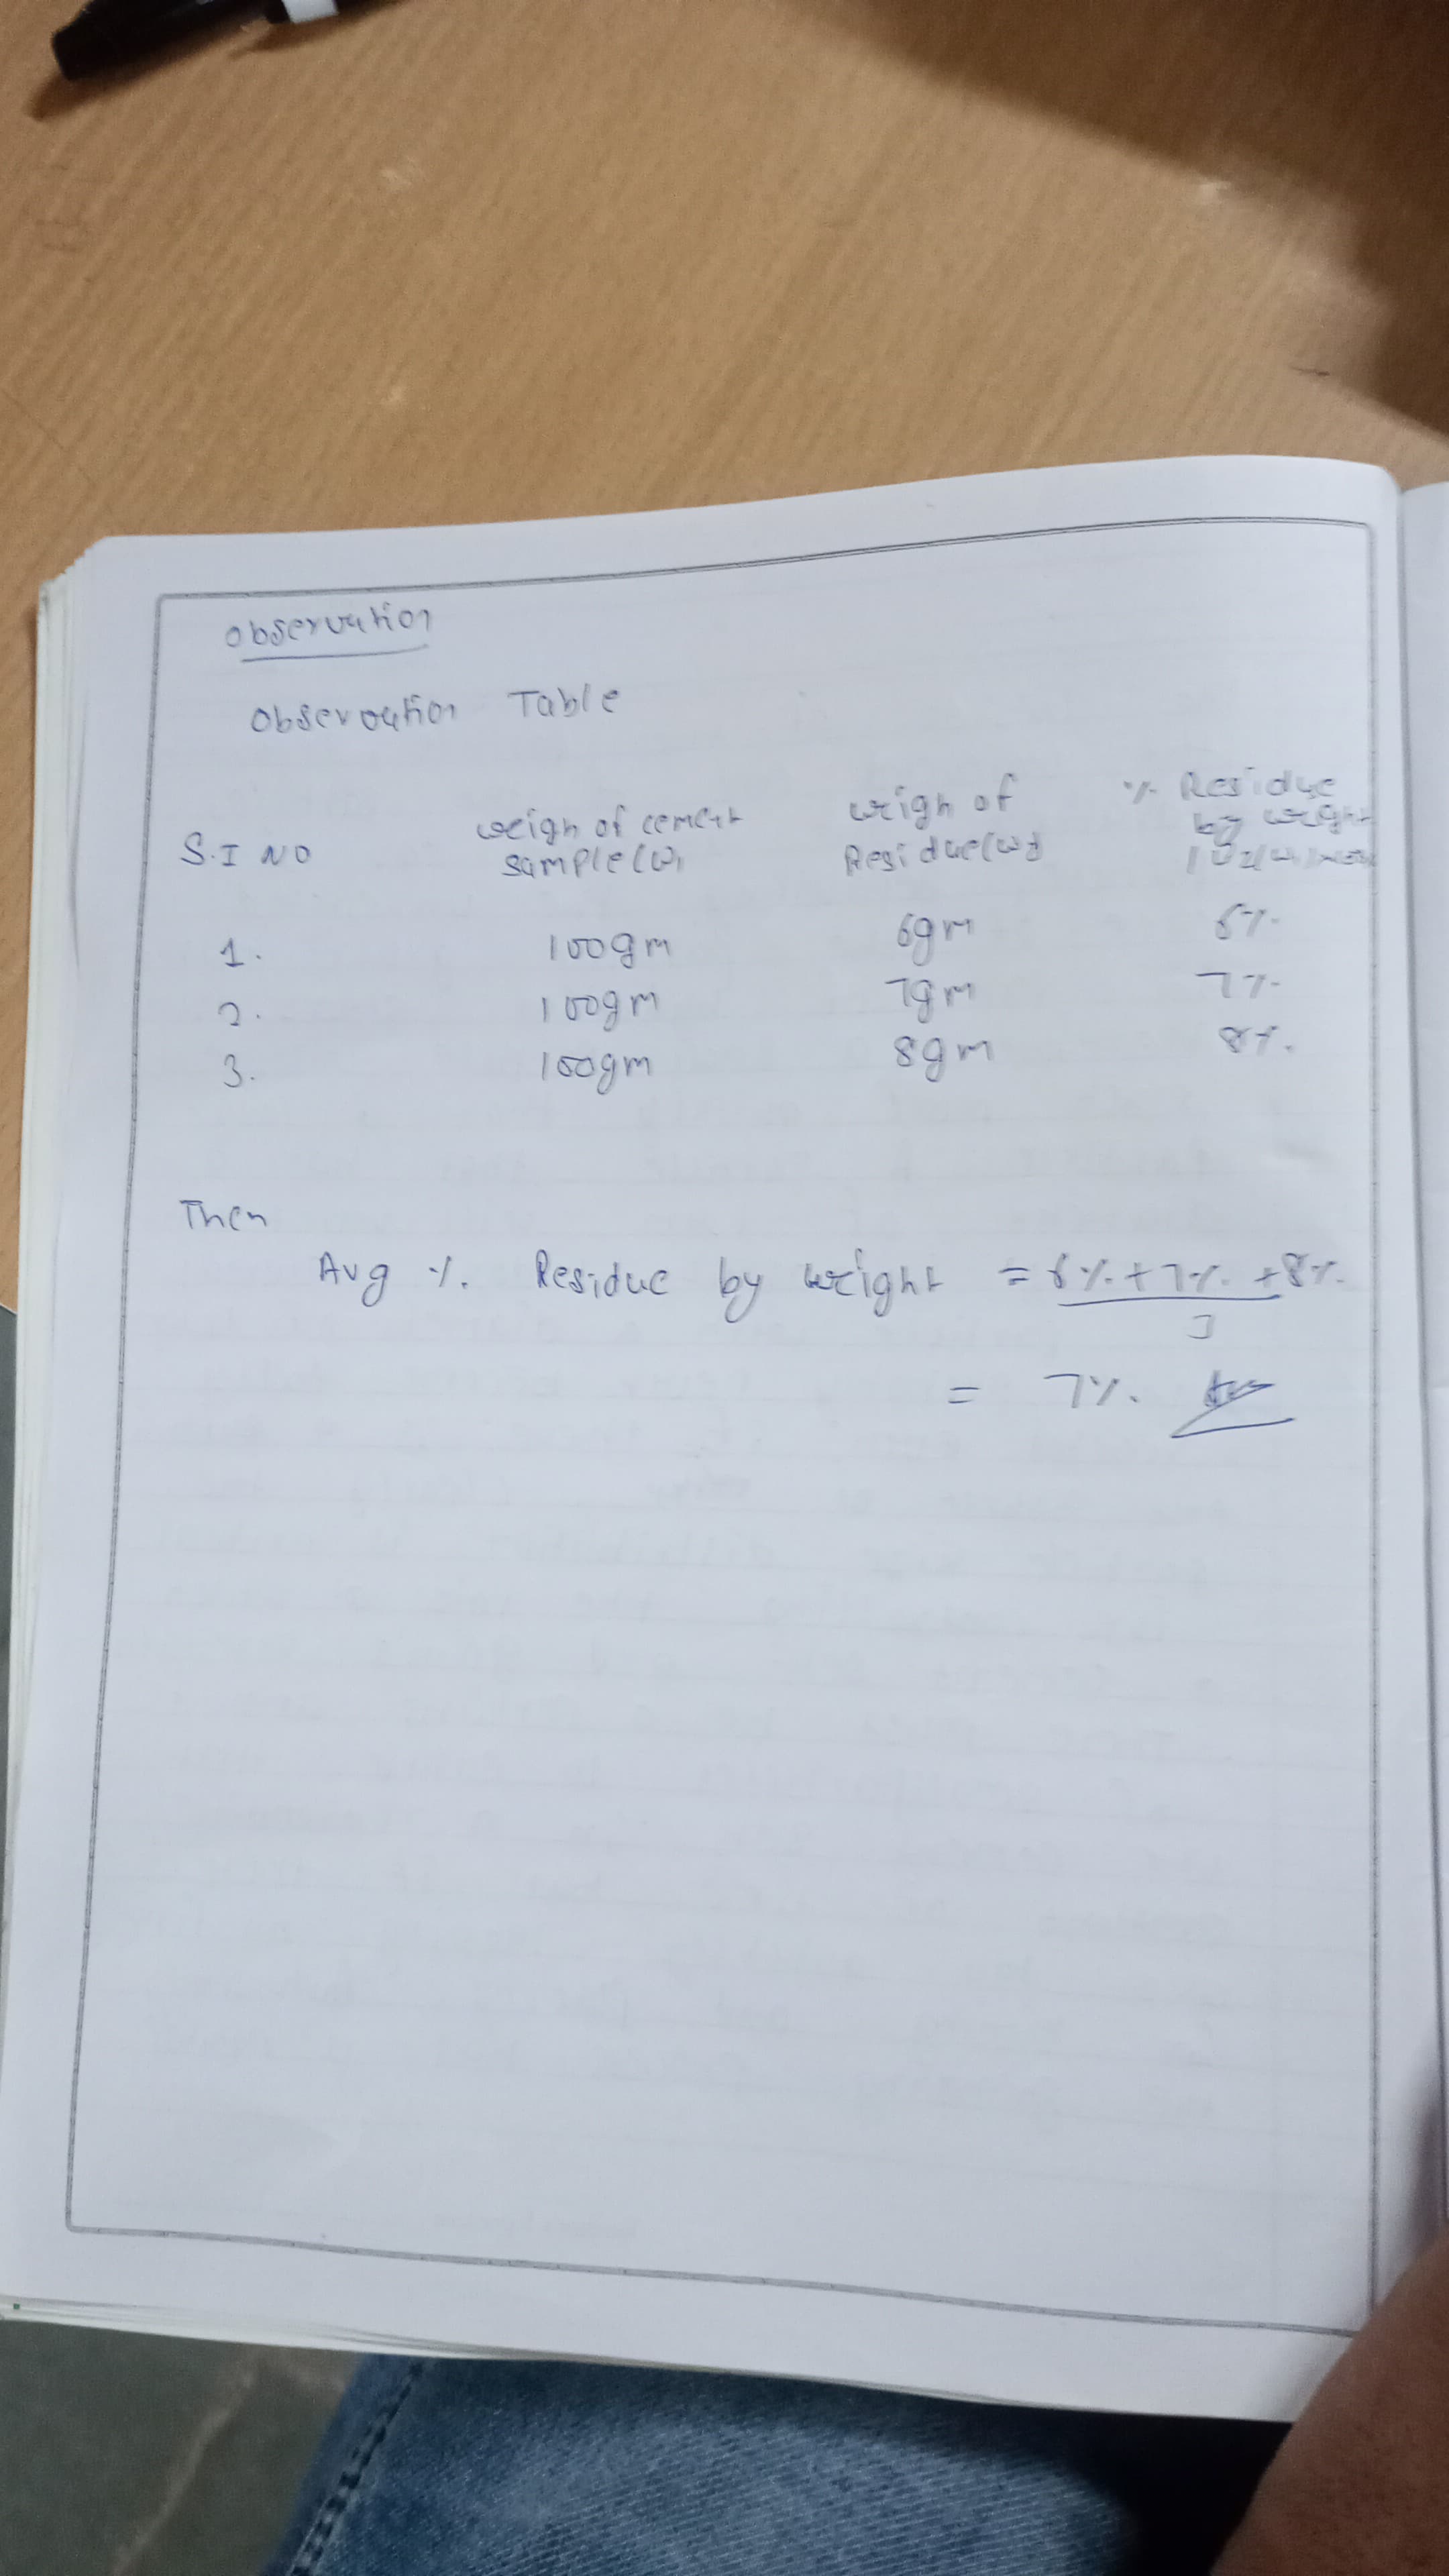 Observation
Observation Table
S.I NO
weigh of cement sample (W1
weigh of Residue (W2
% Residue by weight
1. 100gm 6gm 6%.
2. 100gm 7gm 7%.
3. 100gm 8gm 8%.
Then
Avg %. Residue by weight = 6%. + 7%. + 8%.
3
= 7%. Ans